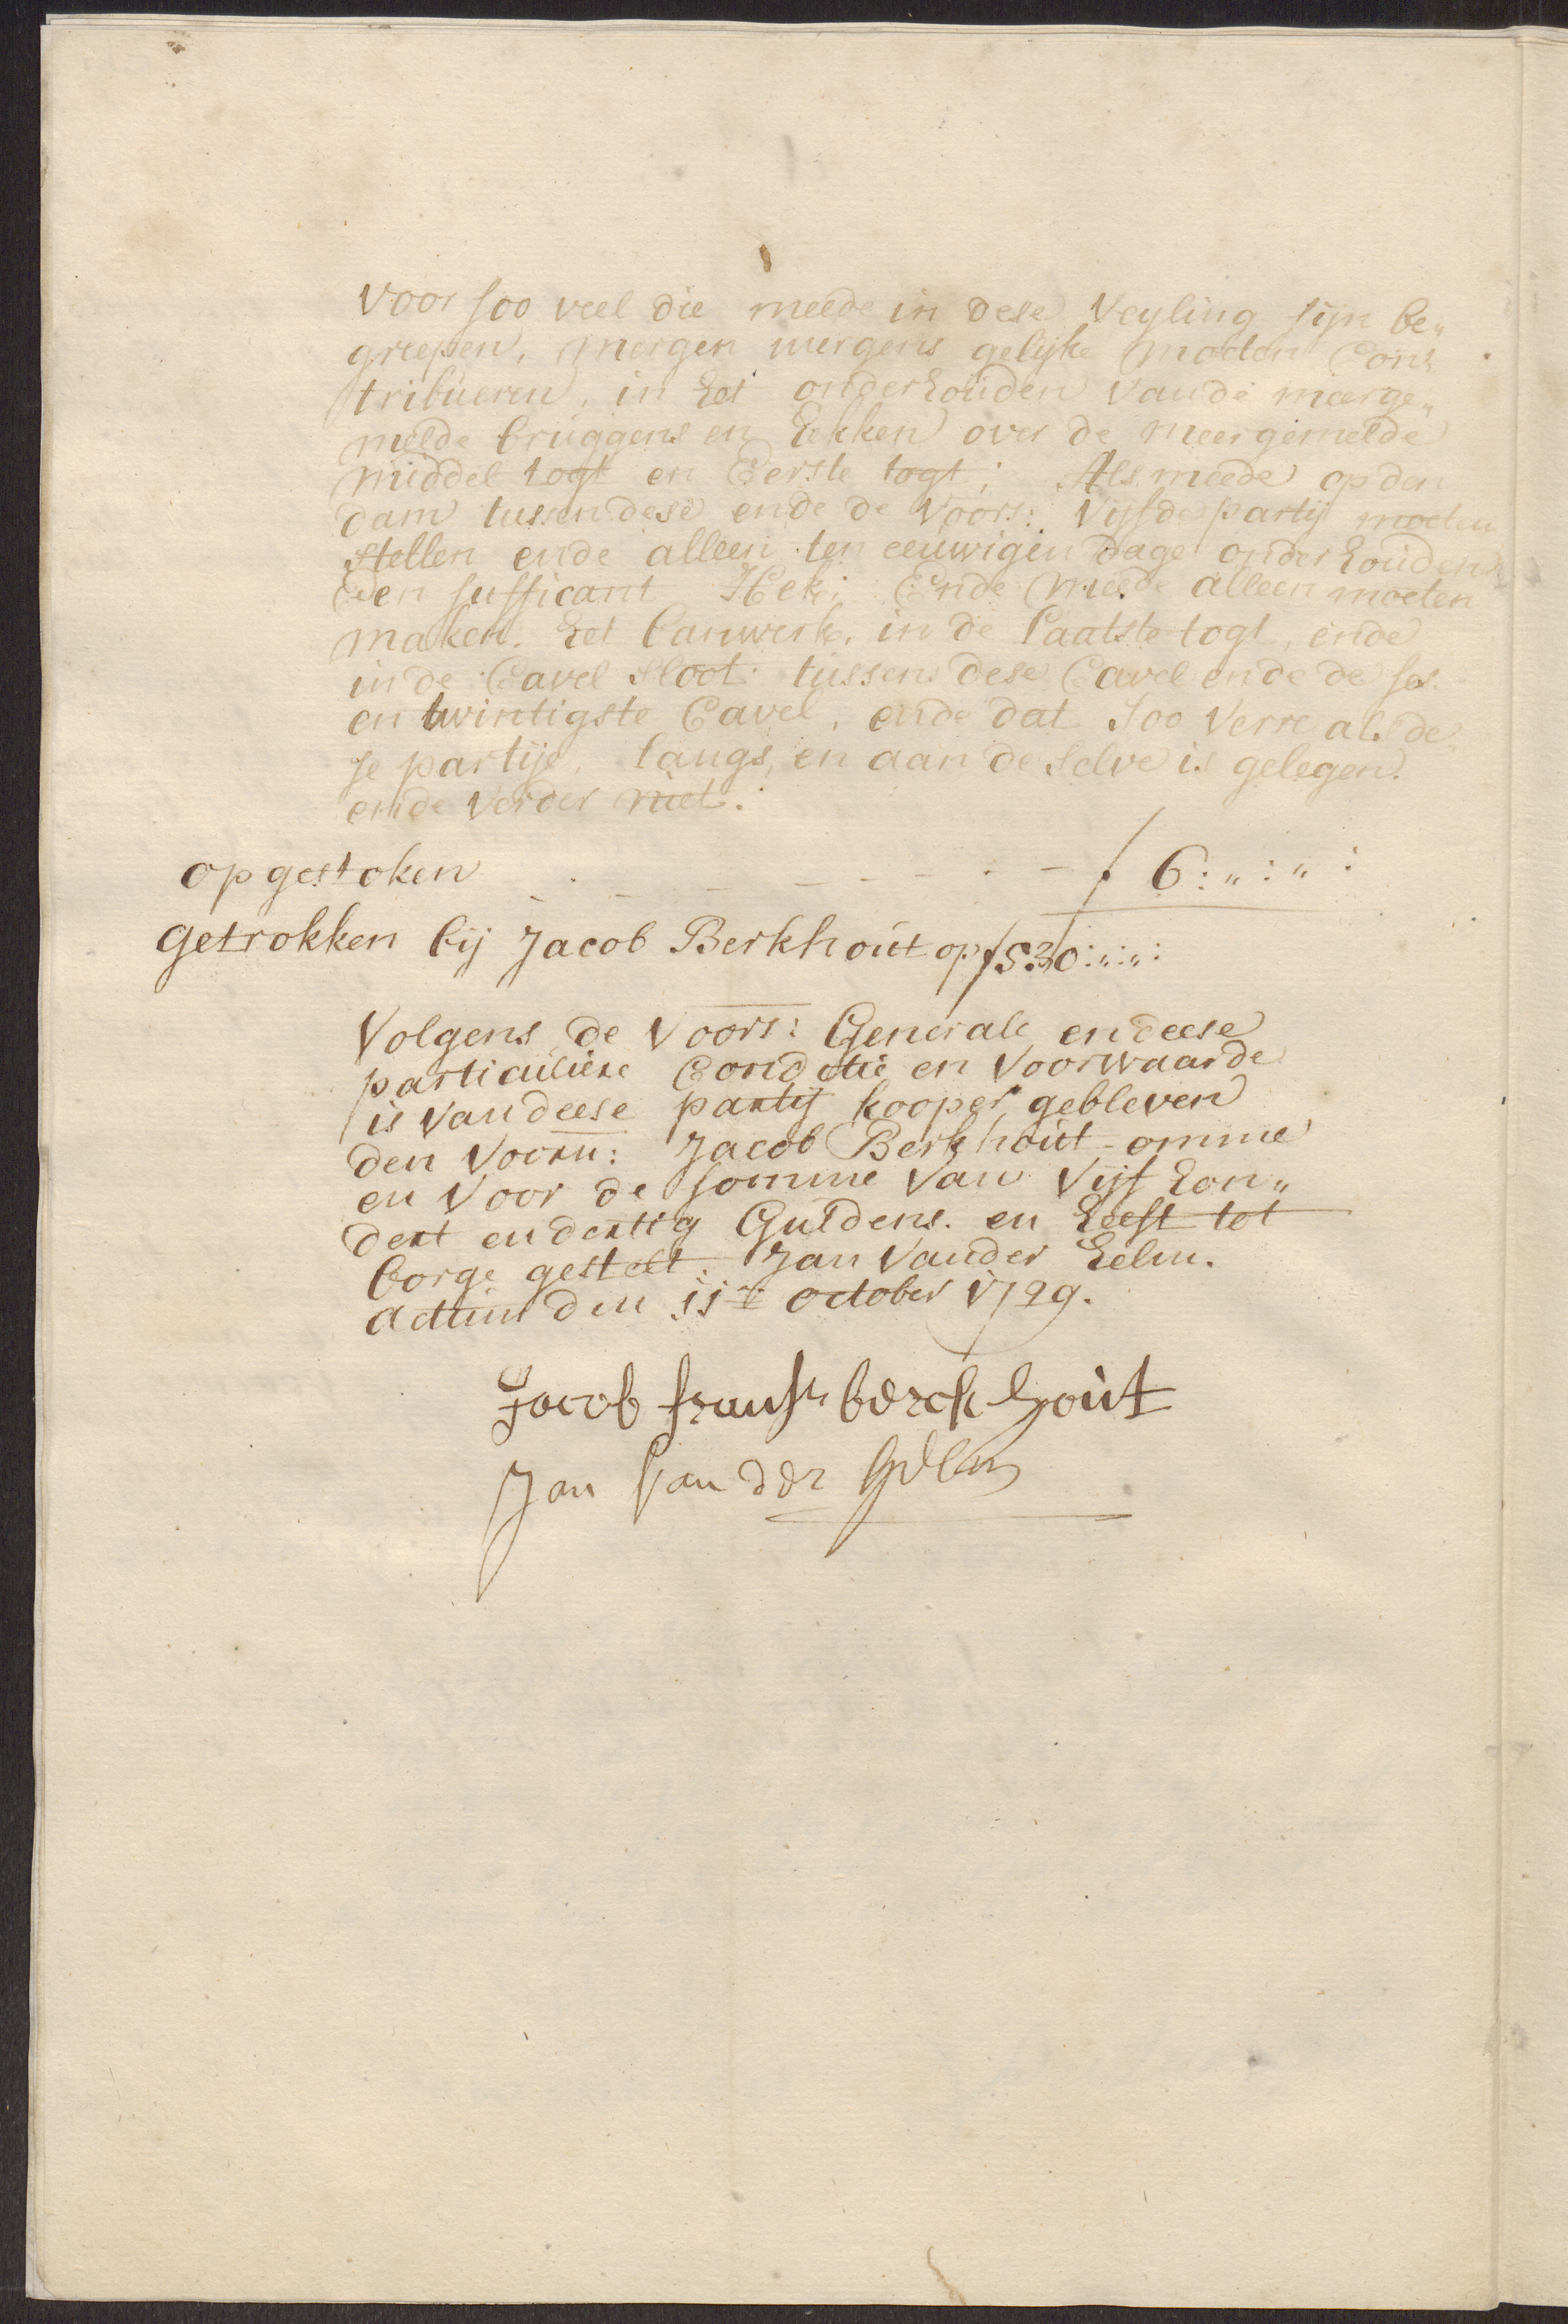 voor soo veel die meede in dese Veyling sijn be„
greepen, Morgen mergens gelijke moeten Con„
tribueren, in het onderhouden van de meerge„
melde bruggens en Hekken over de meergemelde
middel togt en Eerste togt; Als meede op den
dam tussen dese ende de voors: Vijfde partij moeten
stellen ende alleen ten eeuwigen dage onderhouden
Een sufficant Hek; Ende Meede alleen moeten
maken het banwerk, in de Laatste togt, ende
in de Cavel sloot tussens dese Cavel ende de ses
en twintigste Cavel, ende dat soo Verre als de
se partije, langs, en aan de selve is gelegen.
ende verder niet.
opgestoken - - - - - - - - f 6:„:„:
getrokken bij Jacob Berkhout op f 530:„:„:
Volgens de Voors: Generale en deese
particuliere Conditie en Voorwaarde
is van deese partij kooper gebleven
den Voorn: Jacob Berkhout omme
en Voor de somme van Vijf hon„
dert en dertig Guldens. en heeft tot
borge gestelt. Jan Vander Helm.
Actum den 11e october 1729.
Jacob fransz berckhout
Jan Van der Helm